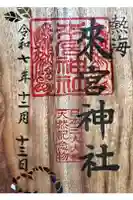 熱海
來宮神社
來宮神社
天然記念物
令和七年十二月十三日